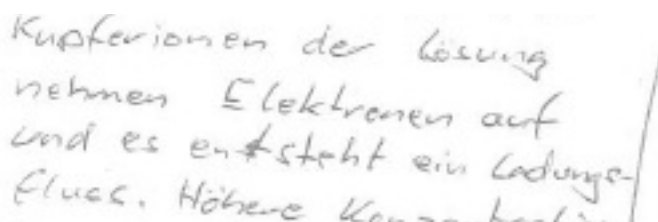 Kupferionen der Lösung
nehmen Elektronen auf
und es entsteht ein Ladungs-
fluss. Höhere